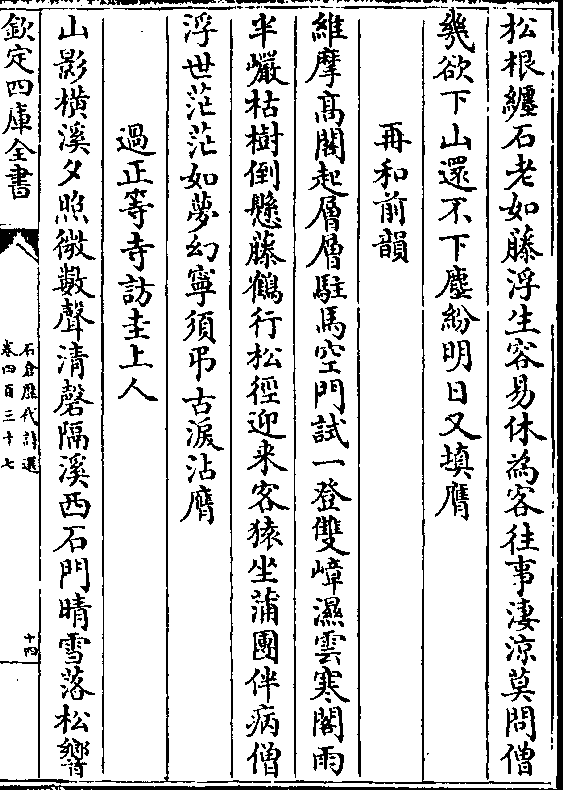 松根纏石老如藤浮生容易休為客往事淒涼莫問僧
幾欲下山還不下塵紛明日又填膺
再和前韻
維摩髙閣起層層駐馬空門試一登雙嶂濕雲寒閣雨
半巗枯樹倒懸藤鶴行松徑迎来客猿坐蒲團伴病僧
浮世茫茫如夢幻寧須弔古淚沾膺
過正等寺訪圭上人
山影橫溪夕照微數聲清磬隔溪西石門晴雪落松響
欽定四庫全書
石倉歴代詩選
卷四百三十七
十四